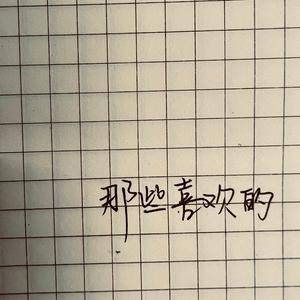 那些喜欢的